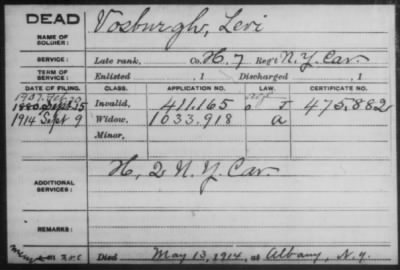 DEAD Vosburgh, Levi
NAME OF SOLDIER:
SERVICE: Late rank, Co. H. 7 Reg't N.Y. Cav.
TERM OF SERVICE: Enlisted , 1 Discharged , 1
DATE OF FILING. CLASS. APPLICATION NO. LAW. CERTIFICATE NO.
1880 Invalid, 411.165 J 475.882
1914 Sept 9 Widow, 1033.918 a
Minor,
ADDITIONAL SERVICES: H, 2 N.Y. Cav.
Died May 13, 1914, at Albany, N.Y.